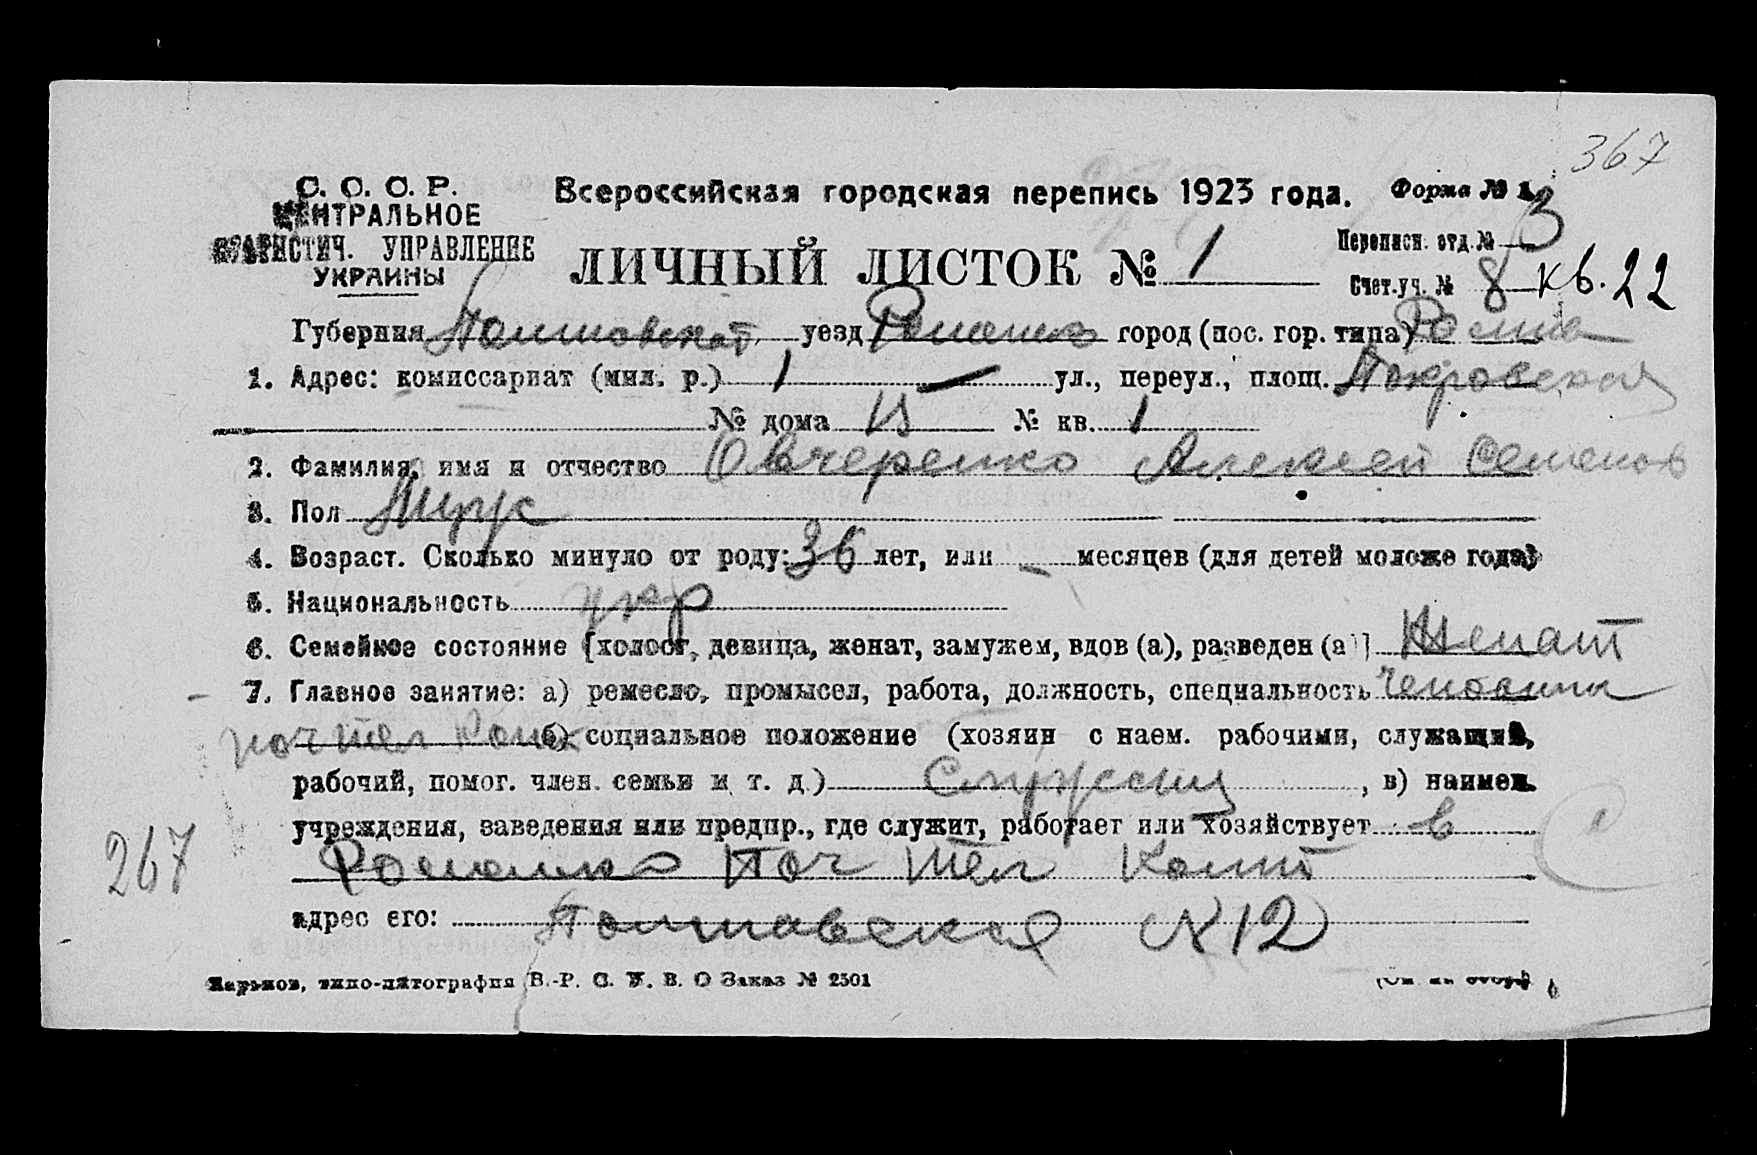 367
С. С. С. Р.
ЦЕНТРАЛЬНОЕ
СТАТИСТИЧ. УПРАВЛЕНИЕ
УКРАИНЫ
Всероссийская городская перепись 1923 года.
Форма № 1.
ЛИЧНЫЙ ЛИСТОК № 1
Переписн. отд. № 3
Счет.уч. № 8 кв. 22
Губерния Полтавская уезд город (пос. гор. типа) Ромна
1. Адрес: комиссариат (мил. р.) 1 — ул., переул., площ. Покровская
№ дома № кв. 1
2. Фамилия, имя и отчество Овчеренко Алексей Семенов
3. Пол Муж
4. Возраст. Сколько минуло от роду: 36 лет, или — месяцев (для детей моложе года)
5. Национальность укр
6. Семейное состояние [холост, девица, женат, замужем, вдов (а), разведен (а)] Женат
7. Главное занятие: а) ремесло, промысел, работа, должность, специальность
поч тел б) социальное положение (хозяин с наем. рабочими, служащий,
рабочий, помог. член. семьи и т. д.) Служащ , в) наимен.
учреждения, заведения или предпр., где служит, работает или хозяйствует в
Поч Тел Конт
267
адрес его: Полтавская № 12
Харьков, типо-литография В.-Р. С. У. В. О Заказ № 2501
(См. на обор.)